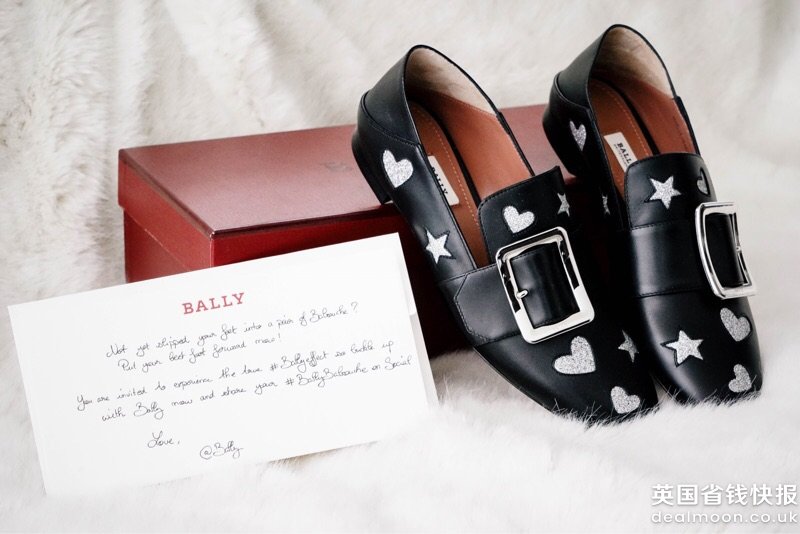 BALLY
Not yet slipped your feet into a pair of Babouche?
Put your best foot forward now!
You are invited to experience the true #Ballyeffect so buckle up
with Bally now and share your #BallyBabouche on Social
Love,
@Bally
BALLY
BALLY
英国省钱快报
dealmoon.co.uk